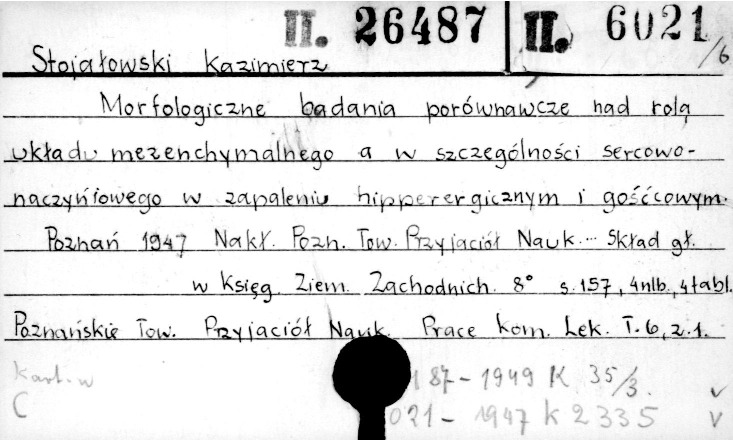 II. 26487 II. 6021/6
Stojałowski Kazimierz
Morfologiczne badania porównawcze nad rolą
układu mezenchymalnego a w szczególności sercowo-
naczyńiowego w zapaleniu hipperergicznym i gośćcowym.
Poznań 1947 Nakł. Pozn. Tow. Przyjaciół Nauk. Skład gł.
w Księg. Ziem. Zachodnich. 8° s. 157, 4nlb., 4tabl.
Poznańskie Tow. Przyjaciół Nauk. Prace Kom. Lek. T. 6, z. 1.
Kart. w 187 - 1949 K 35/3. v
C 021 - 1947 K 2335 v